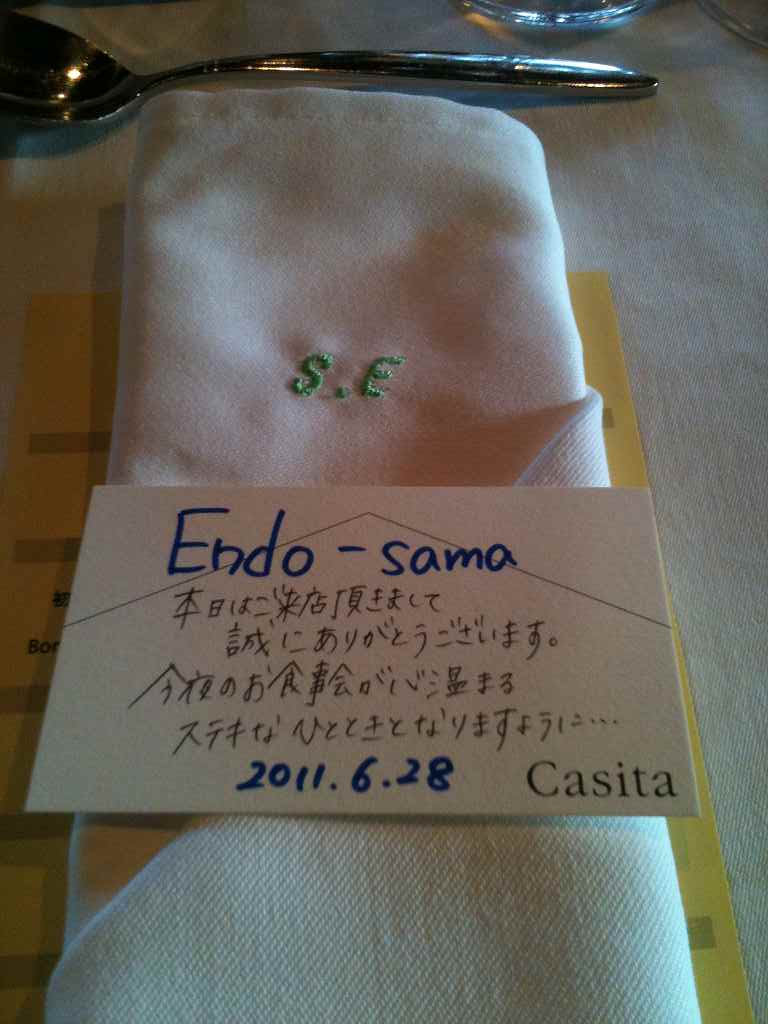 S.E
Endo-sama
本日はご来店頂きまして
誠にありがとうございます。
今夜のお食事会が心温まる
ステキなひとときとなりますように…
2011.6.28
Casita
初
Bor